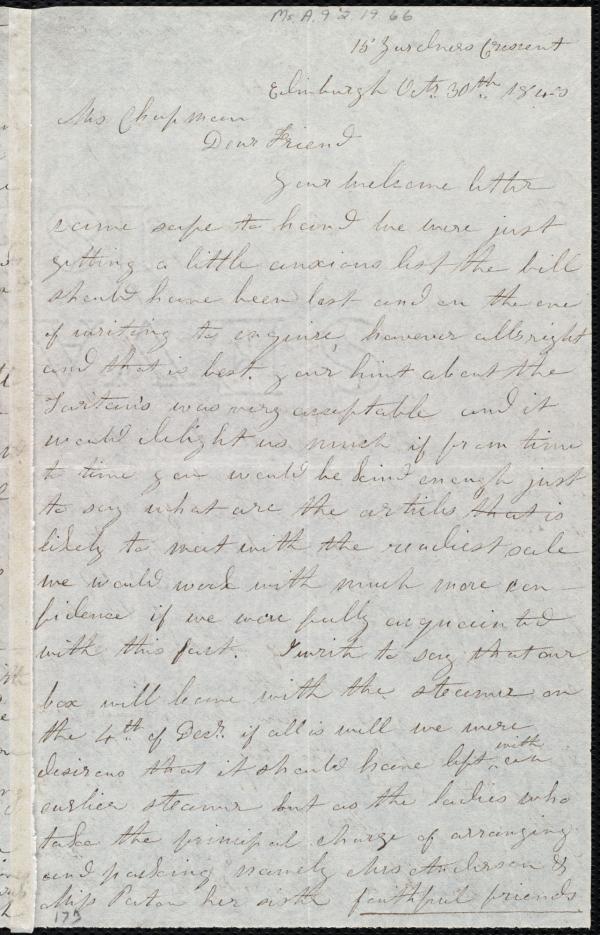 Ms. A. 9. 2. 19. 66
15 Gardners Crescent
Edinburgh Octr. 30th. 1845
Mrs Chapman
Dear Friend
Your welcome letter
came safe to hand we were just
getting a little anxious lest the bill
should have been lost and on the eve
of writing to enquire, however alls right
and that is best. your hint about the
Tartan's was very acceptable and it
would delight us much if from time
to time you would be kind enough just
to say what are the articles that is
likely to meet with the readiest sale
we would work with much more con-
fidence if we were fully acquainted
with this fact. I write to say that our
box will leave with the steamer on
the 4th. of Decr. if all is well we were
desirous that it should have left with an
earlier steamer but as the ladies who
take the principal charge of arranging
and packing namely Mrs Anderson &
Miss Paton her sister faithful friends
173